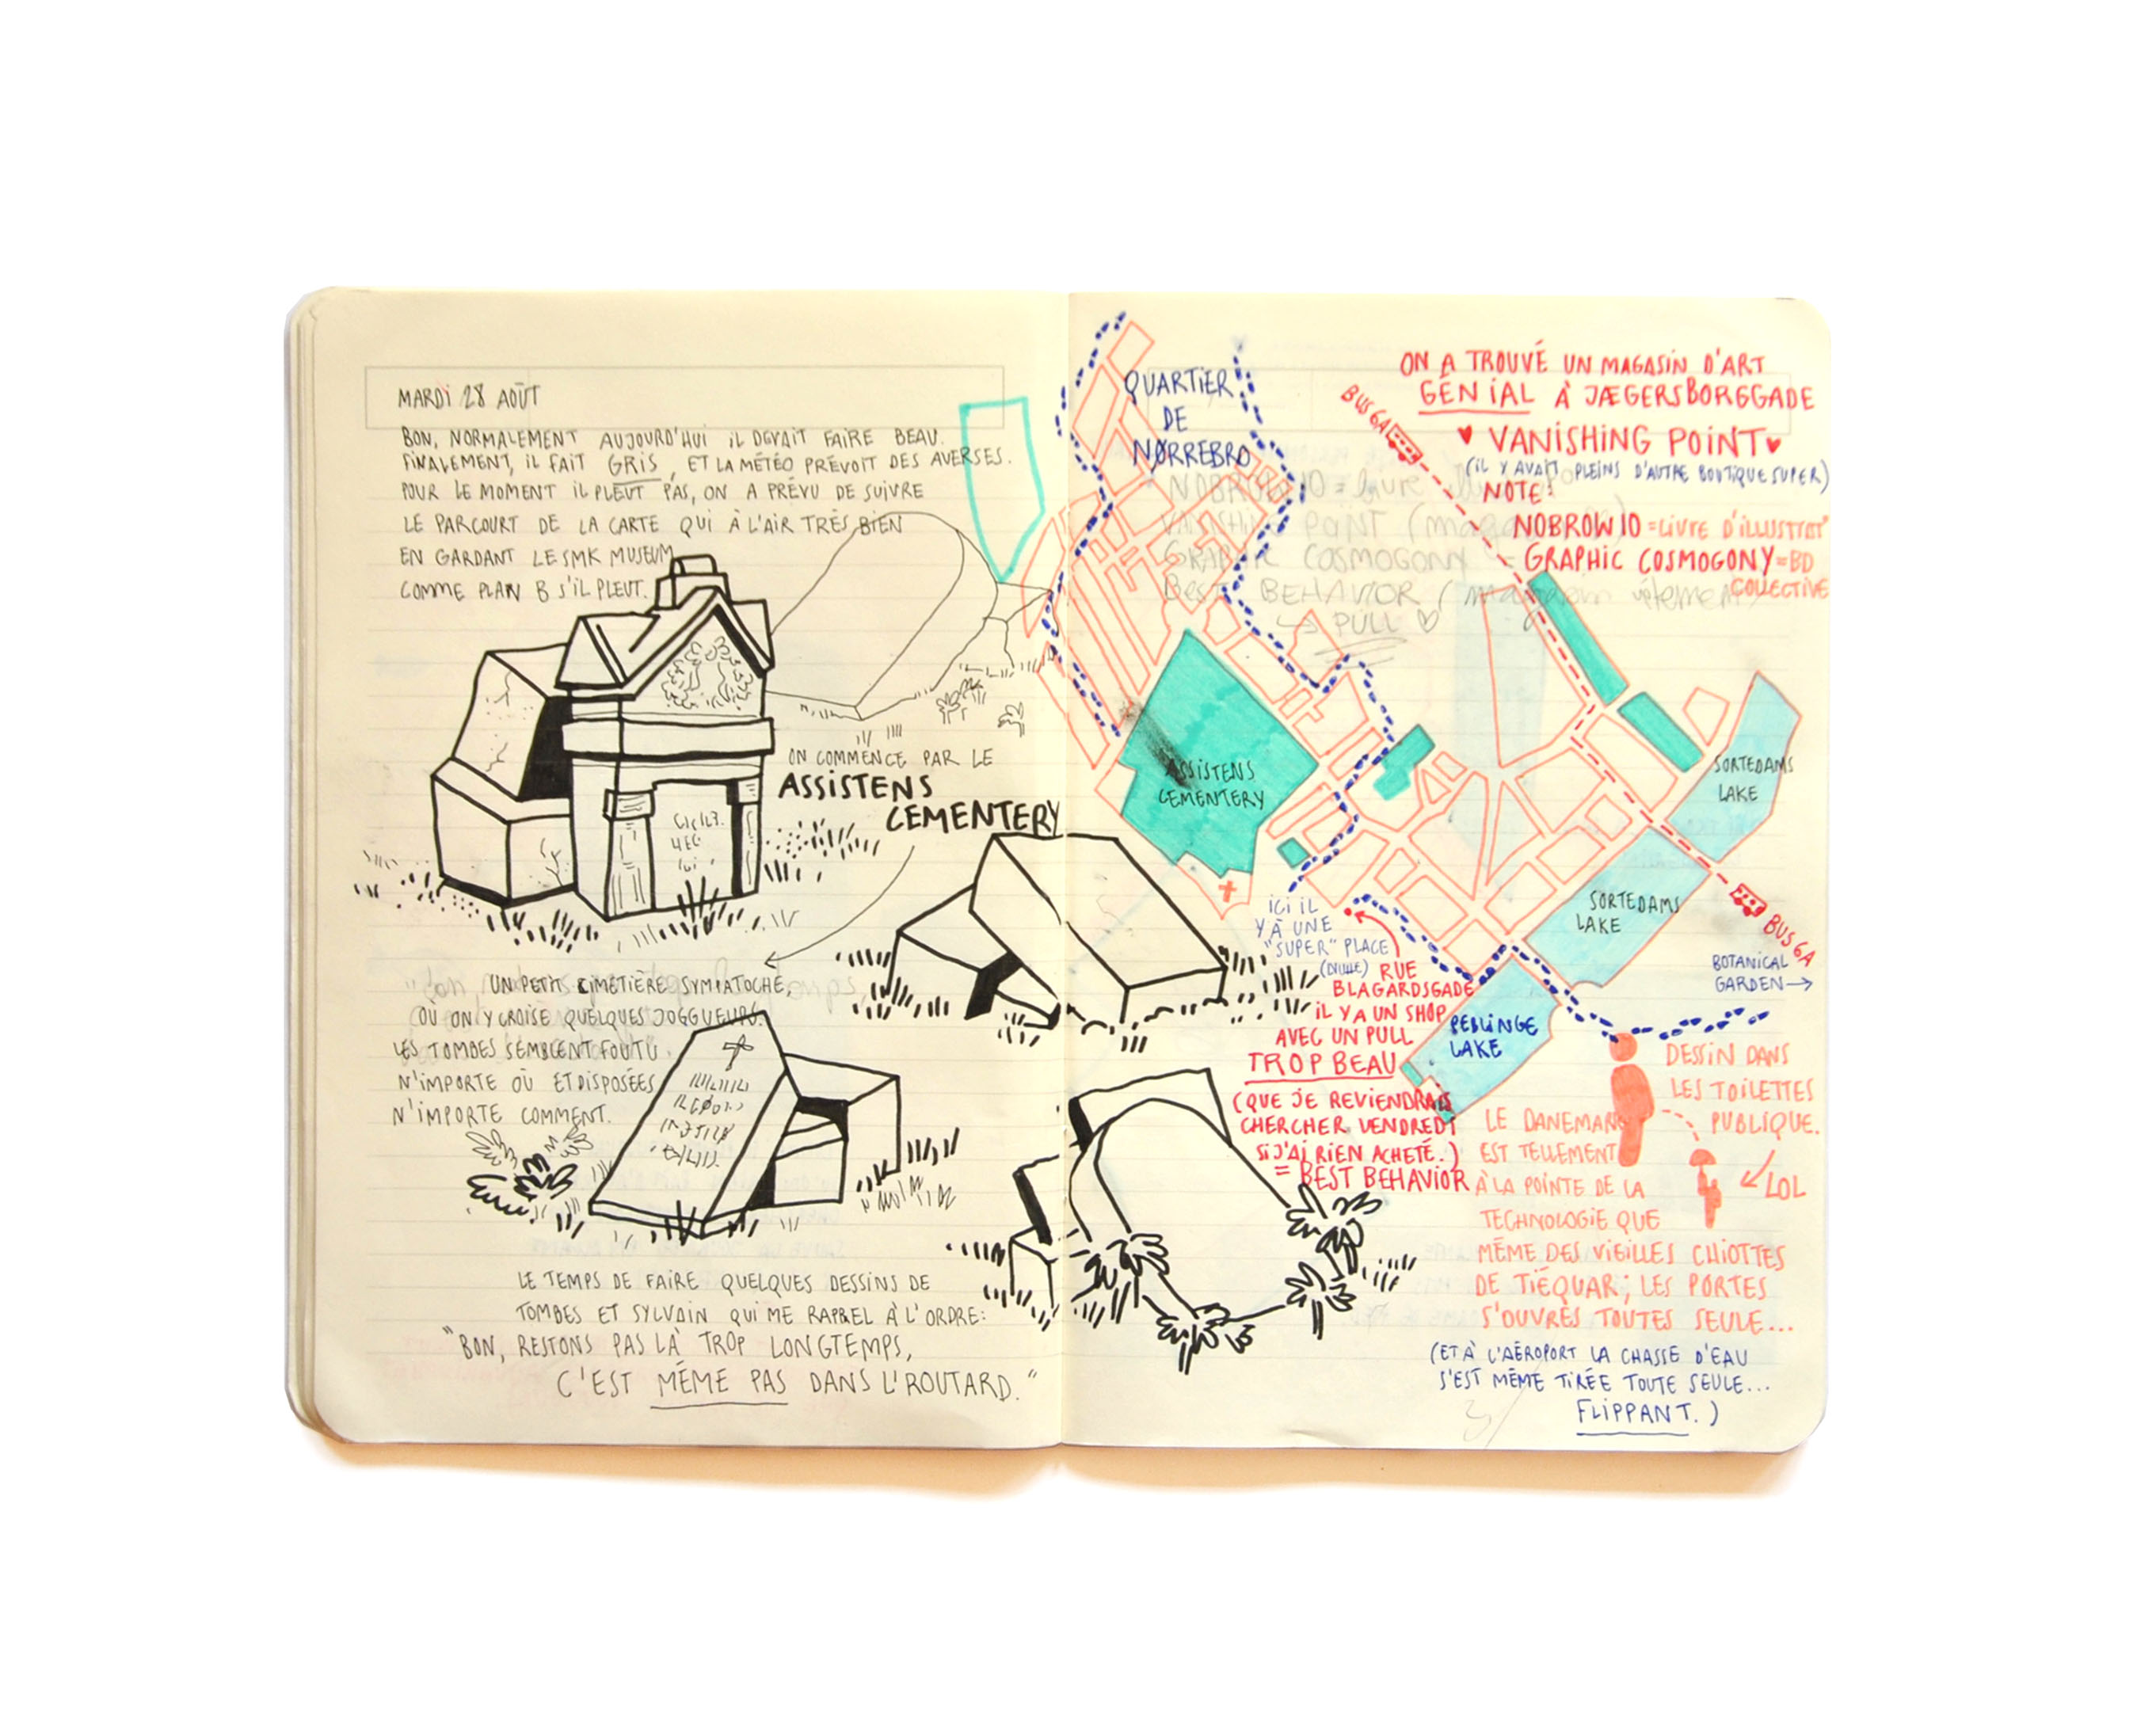 MARDI 28 AOÛT
BON, NORMALEMENT AUJOURD'HUI IL DEVAIT FAIRE BEAU.
FINALEMENT, IL FAIT GRIS, ET LA MÉTÉO PRÉVOIT DES AVERSES.
POUR LE MOMENT IL PLEUT PAS, ON A PRÉVU DE SUIVRE
LE PARCOURT DE LA CARTE QUI À L'AIR TRÈS BIEN
EN GARDANT LE SMK MUSEUM
COMME PLAN B S'IL PLEUT.
ON COMMENCE PAR LE
ASSISTENS
CEMENTERY
UN PETIT CIMETIÈRE SYMPATOCHE,
OÙ ON Y CROISE QUELQUES JOGGUEURS.
LES TOMBES SEMBLENT FOUTU
N'IMPORTE OÙ ET DISPOSÉES
N'IMPORTE COMMENT.
LE TEMPS DE FAIRE QUELQUES DESSINS DE
TOMBES ET SYLVAIN QUI ME RAPPEL À L'ORDRE:
"BON, RESTONS PAS LÀ TROP LONGTEMPS,
C'EST MÊME PAS DANS L'ROUTARD."
QUARTIER
DE
NØRREBRO
BUS 6A
ON A TROUVÉ UN MAGASIN D'ART
GÉNIAL À JÆGERSBORGGADE
♥ VANISHING POINT ♥
(IL Y AVAIT PLEINS D'AUTRE BOUTIQUE SUPER)
NOTE:
NOBROW 10 = LIVRE D'ILLUSTRAT°
- GRAPHIC COSMOGONY = BD
COLLECTIVE
NOBROW 10 = livre
VANISHING POINT
GRAPHIC COSMOGONY
BEST BEHAVIOR (magasin vêtement)
↳ PULL ♡
ASSISTENS
CEMENTERY
SORTEDAMS
LAKE
SORTEDAMS
LAKE
BUS 6A
BOTANICAL
GARDEN →
PEBLINGE
LAKE
ICI IL
Y À UNE
"SUPER" PLACE
RUE
BLAGARDSGADE
IL Y A UN SHOP
AVEC UN PULL
TROP BEAU
(QUE JE REVIENDRAIS
CHERCHER VENDREDI
SI J'AI RIEN ACHETÉ.)
= BEST BEHAVIOR
DESSIN DANS
LES TOILETTES
PUBLIQUE.
LOL
LE DANEMARK
EST TELLEMENT
À LA POINTE DE LA
TECHNOLOGIE QUE
MÊME DES VIEILLES CHIOTTES
DE TIÉQUAR; LES PORTES
S'OUVRÈS TOUTES SEULE...
(ET À L'AÉROPORT LA CHASSE D'EAU
S'EST MÊME TIRÉE TOUTE SEULE...
FLIPPANT.)